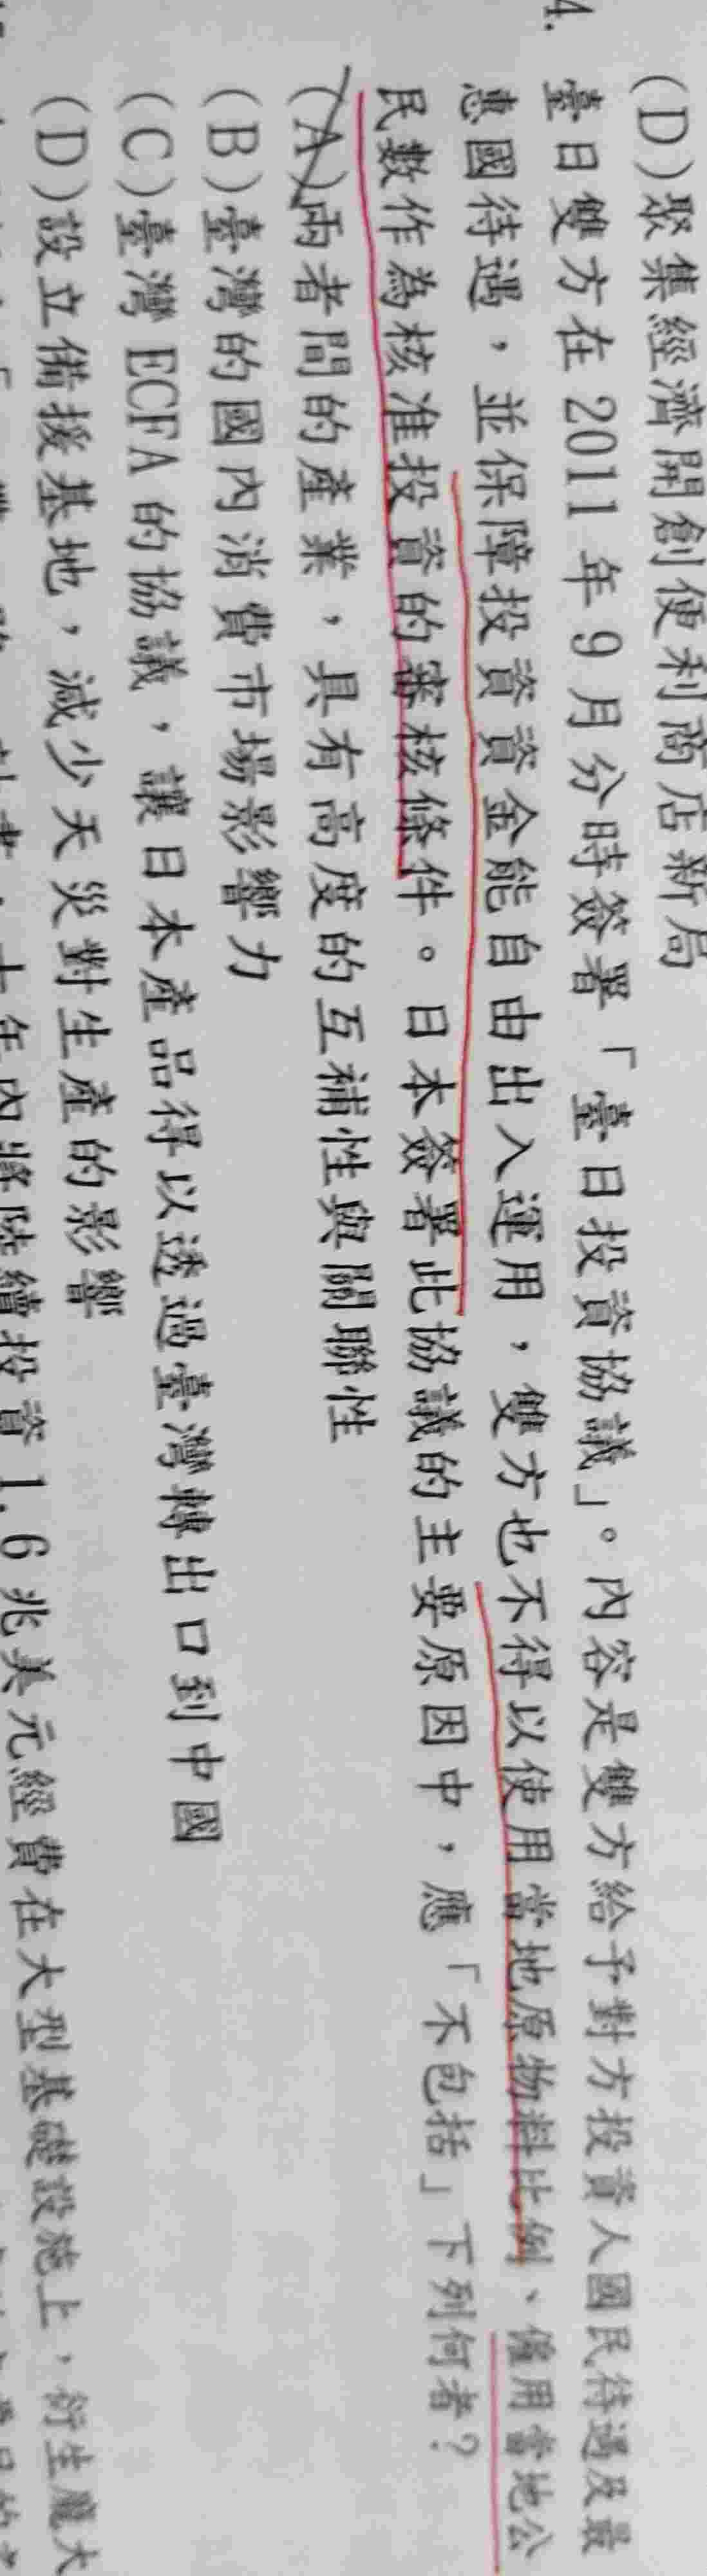 (D)聚集經濟開創便利商店新局
4. 臺日雙方在 2011 年 9 月分時簽署「臺日投資協議」。內容是雙方給予對方投資人國民待遇及最
惠國待遇，並保障投資資金能自由出入運用，雙方也不得以使用當地原物料比例、僱用當地公
民數作為核准投資的審核條件。日本簽署此協議的主要原因中，應「不包括」下列何者？
(A)兩者間的產業，具有高度的互補性與關聯性
(B)臺灣的國內消費市場影響力
(C)臺灣 ECFA 的協議，讓日本產品得以透過臺灣轉出口到中國
(D)設立備援基地，減少天災對生產的影響
十年內將陸續投資 1.6 兆美元經費在大型基礎設施上，衍生龐大